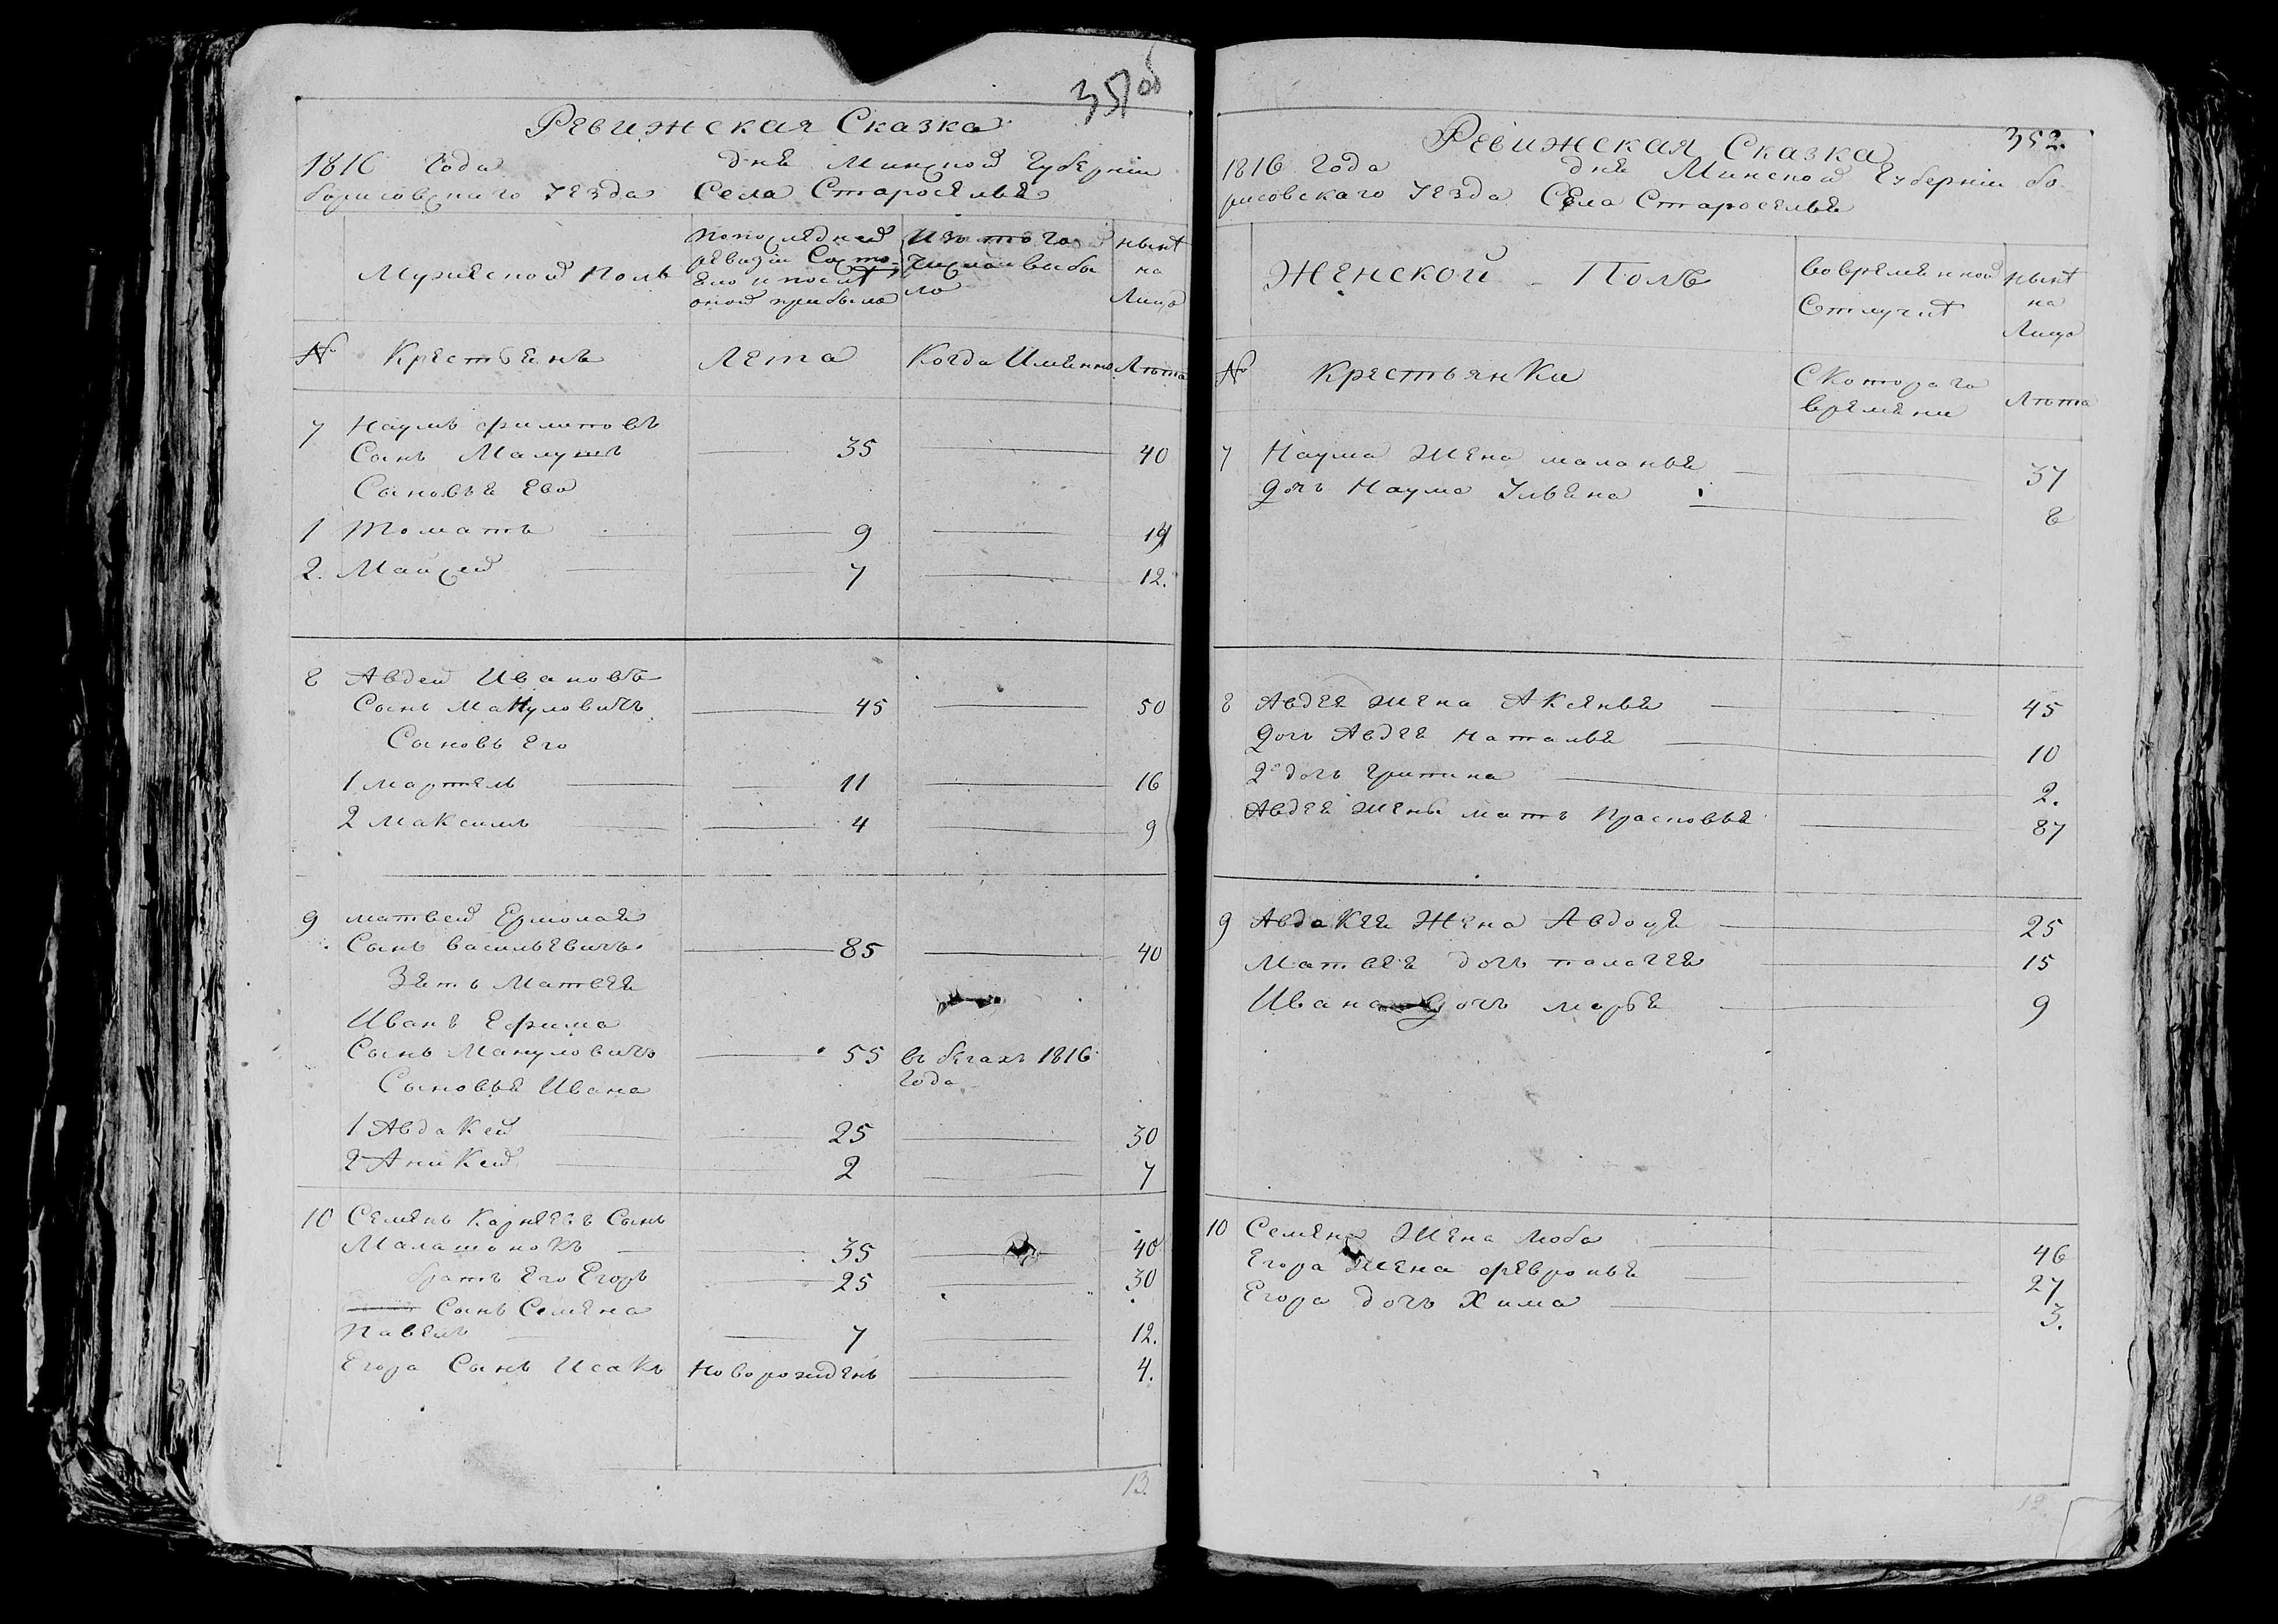 351об
Ревижская Сказка
1816 Года дня Минской Губерніи
борисовскаго уезда Села Староселья
Мужеской Полъ
попоследней
ревизіи Состо
яло и послѣ
оной прибыло
Изъ того
Числа выбы
ло
нынѣ
на
Лицо
№ Крестьянъ Лета Когда Именно Лѣта
7 Наумъ филитовъ
Сынъ 35 40
Сыновья Ево
1 Томашъ 9 14
2. Майсей 7 12.
8 Авдей Ивановъ
Сынъ Макуловичъ 45 50
Сыновъ Его
1 мартель 11 16
2 Максимъ 4 9
9 матвей Ермолая
Сынъ васильевичъ 85 40
Зять Матвея
Иванъ Ефима
Сынъ Макуловичъ 55 въ бегахъ 1816
года
Сыновья Ивана
1 Авдакей 25 30
2 Аникей 2 7
10 Семенъ Карнеевъ Сынъ
Малашонокъ 35 40
братъ Его Егоръ 25 30
Сынъ Семена
Павелъ 7 12.
Егора Сынъ Исакъ Новорожденъ 4.
13.
352.
Ревижская Сказка
1816 Года дня Минской Губерніи бо
рисовскаго уезда Села Староселья
Женской Полъ
вовременной
Отлучкѣ
нынѣ
на
Лицо
№ Крестьянки
СКотораго
времени
Лѣта
7 Наума Жена маланья 37
дочъ Наума Ульяна 8
8 Авдея жена Аксинья 45
дочъ Авдея Наталья 10
2я дочъ 2.
Авдея Жены мать Прасковья 87
9 Авдакея Жена Авдоця 25
Матвея дочъ палагея 15
Ивана дочъ марья 9
10 Семена Жена Люба 46
Егора жена февронья 27
Егора дочъ Хима 3.
12